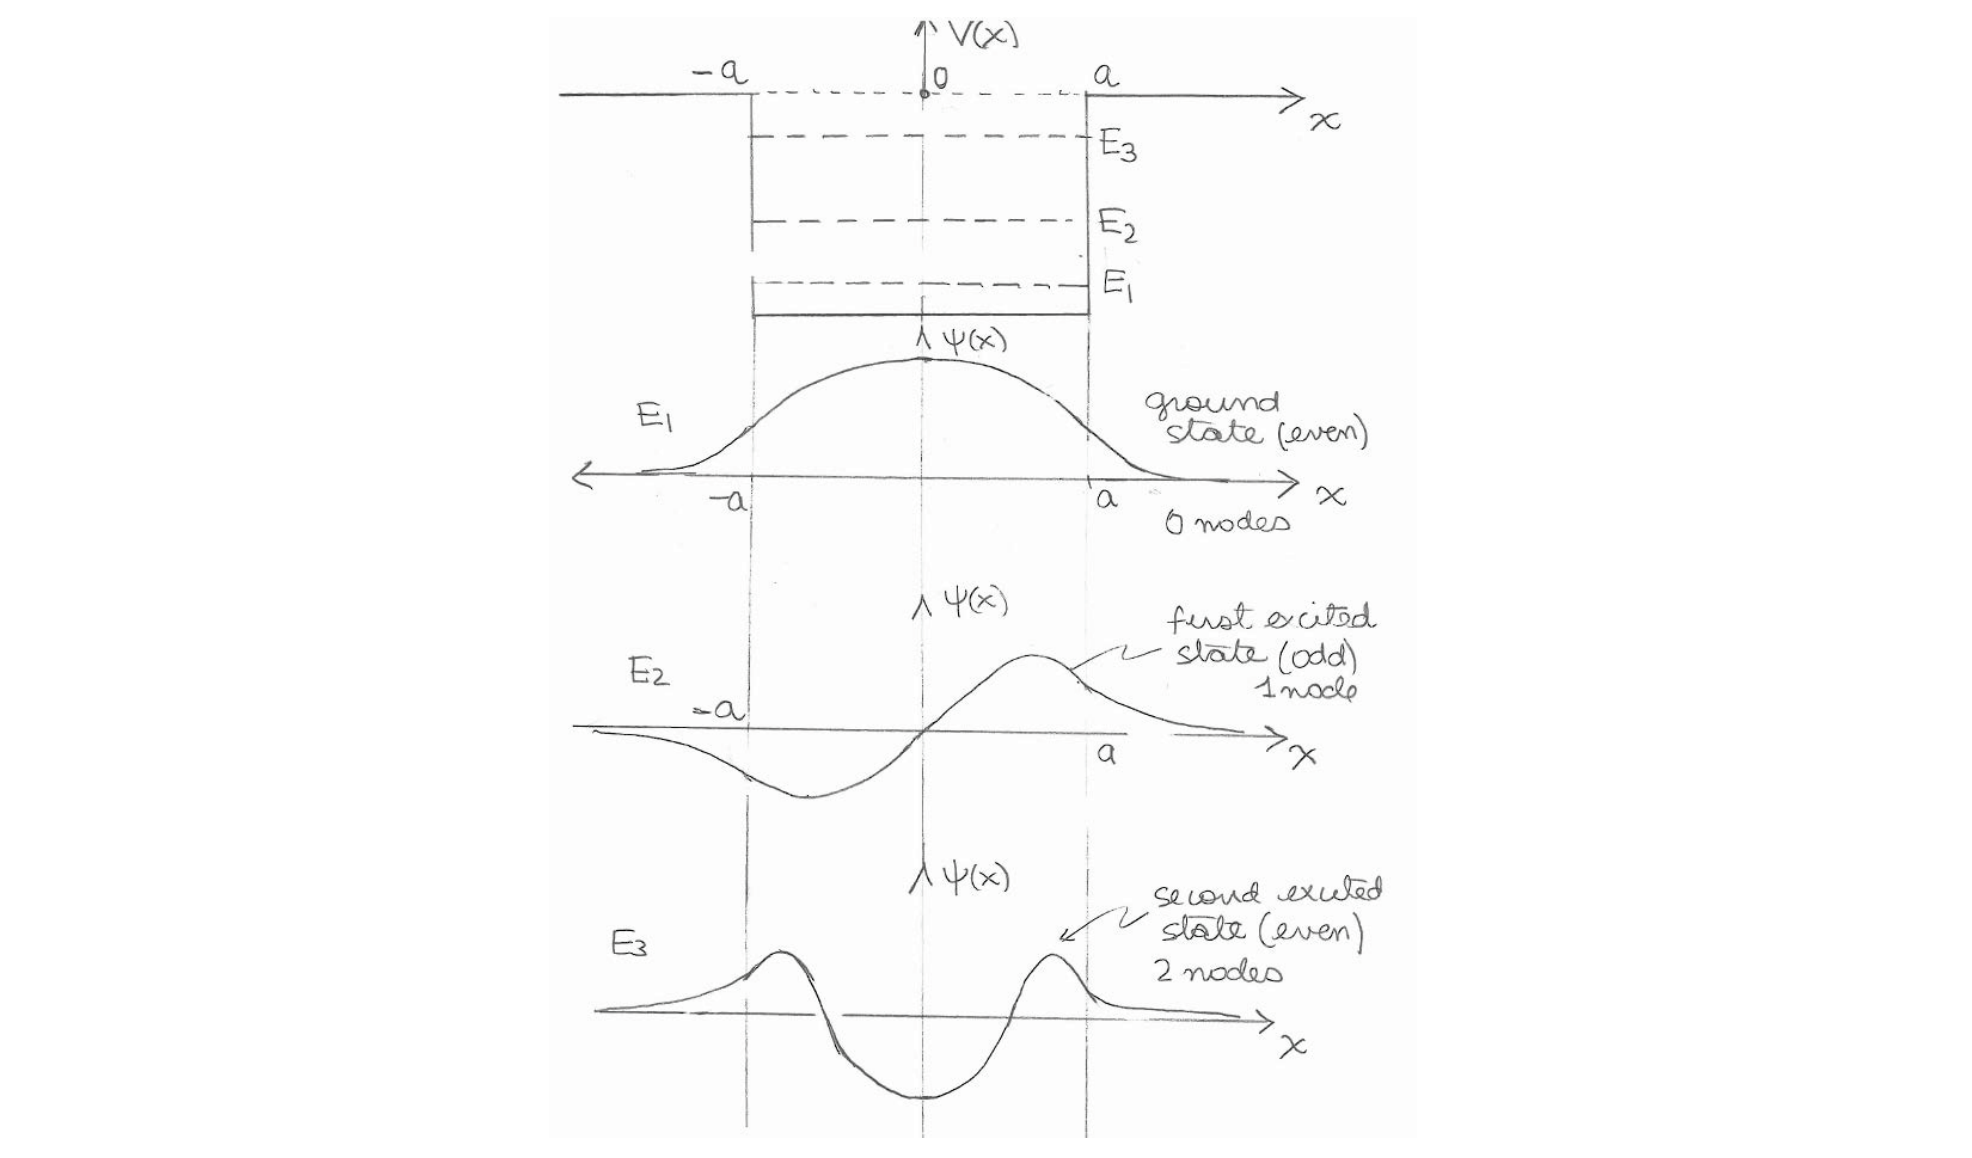 V(x)
-a
0
a
x
E3
E2
E1
ψ(x)
E1
ground
state (even)
-a
a
x
0 nodes
ψ(x)
first excited
state (odd)
1 node
E2
-a
a
x
ψ(x)
second excited
state (even)
2 nodes
E3
x